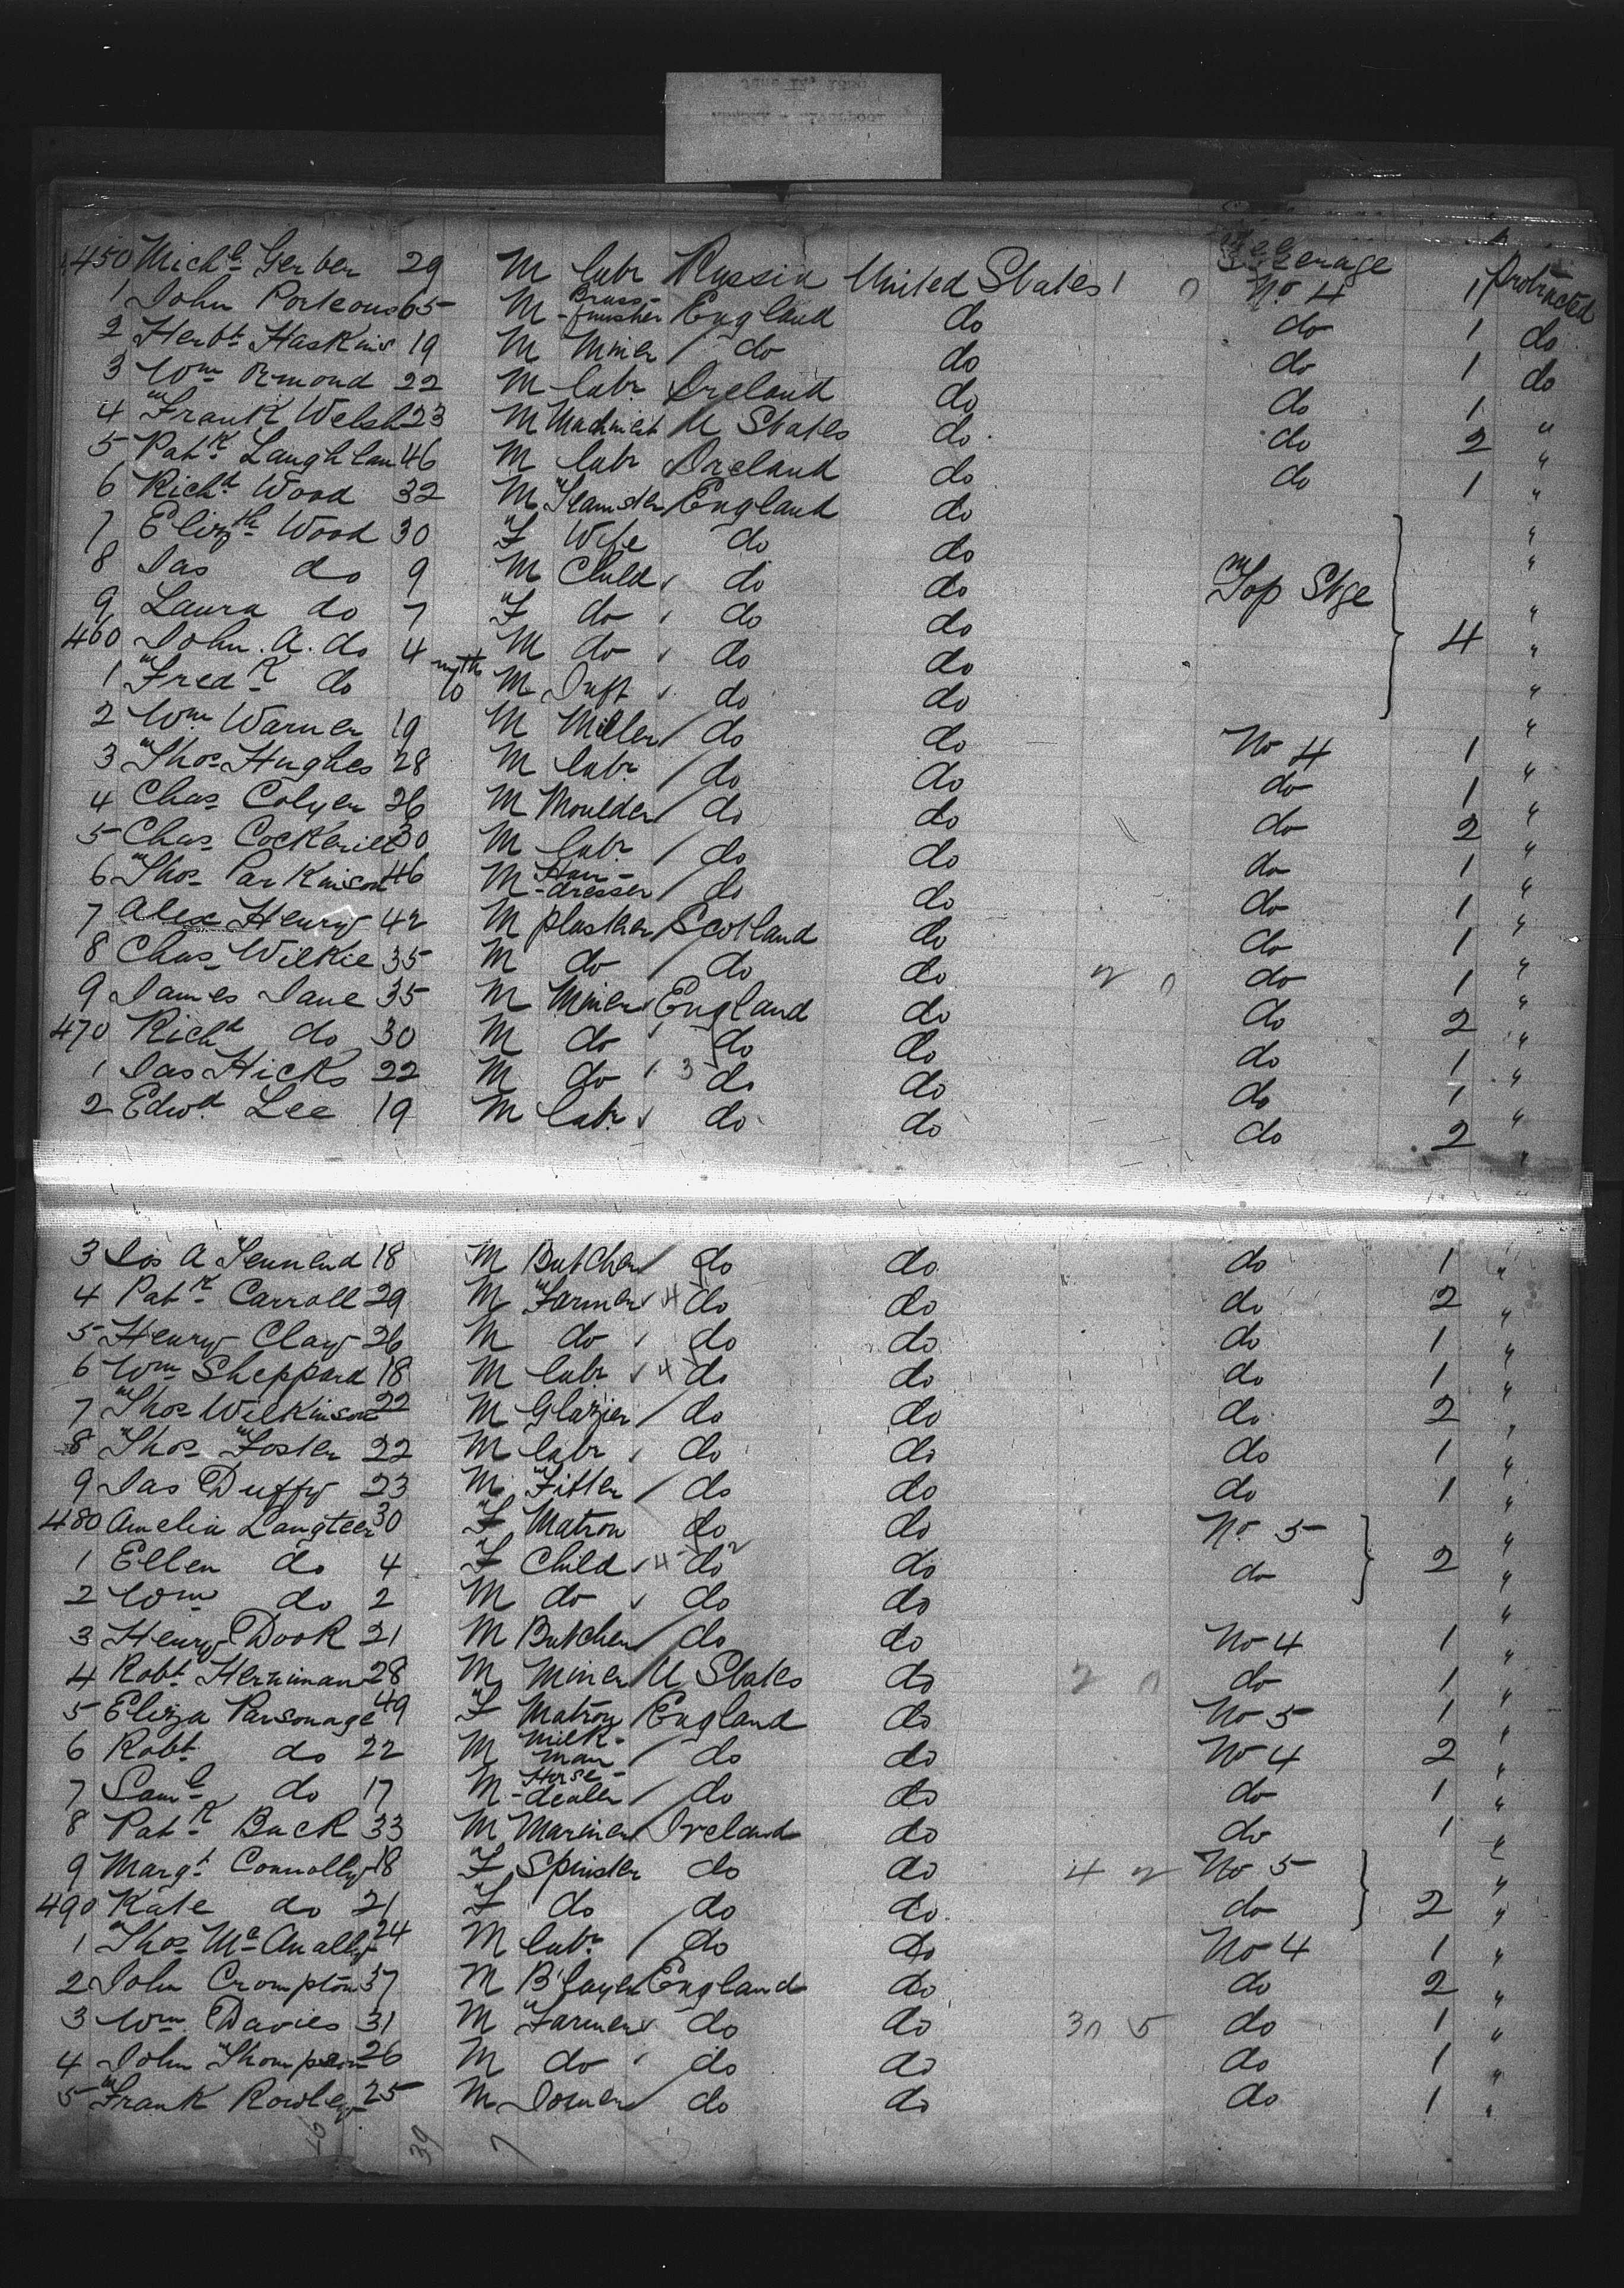 450 Mich^l Gerber 29 M labr Russia United States 1 0 Steerage No 4 1 Protracted
1 John Porteous 65 M Brass-finisher England do do 1 do
2 Herbt Haskins 19 M Miner do do do 1 do
3 Wm Ormond 22 M labr Ireland do do 1 "
4 Frank Welsh 23 M Machinist U States do do 2 "
5 Patk Laughlan 46 M labr Ireland do do 1 "
6 Richd Wood 32 M Teamster England do "
7 Elizth Wood 30 F Wife do do "
8 Jas do 9 M Child do do Top Stge "
9 Laura do 7 F do do do 4 "
460 John. A. do 4 M do do do "
1 Fredk do mths 10 M Inft do do "
2 Wm Warner 19 M Miller do do No 4 1 "
3 Thos Hughes 28 M labr do do do 1 "
4 Chas Colyer 26 M Moulder do do do 2 "
5 Chas Cockerill 30 M labr do do do 1 "
6 Thos Parkinson 46 M Hair-dresser do do do 1 "
7 Alex Henry 42 M plasterer Scotland do do 1 "
8 Chas Wilkie 35 M do do do 2 0 do 1 "
9 James Jane 35 M Miner England do do 2 "
470 Richd do 30 M do do do do 1 "
1 Jas Hicks 22 M do 3 do do do 1 "
2 Edwd Lee 19 M labr do do do 2 "
3 Jos A 18 M Butcher do do do 1 "
4 Patk Carroll 29 M Farmer 4 do do do 2 "
5 Henry Clay 26 M do do do do 1 "
6 Wm Sheppard 18 M labr 4 do do do 1 "
7 Thos Wilkinson 22 M Glazier do do do 2 "
8 Thos Foster 22 M labr do do do 1 "
9 Jas Duffy 23 M Fitter do do do 1 "
480 Amelia Langteer 30 F Matron do do No 5 "
1 Ellen do 4 F Child 4 do 2 do do 2 "
2 Wm do 2 M do do do "
3 Henry Dook 21 M Butcher do do No 4 1 "
4 Robt Herniman 28 M Miner U States do 2 0 do 1 "
5 Eliza Parsonage 49 F Matron England do No 5 1 "
6 Robt do 22 M Milk-man do do No 4 2 "
7 Saml do 17 M Horse-dealer do do do 1 "
8 Patk Buck 33 M Mariner Ireland do do 1 "
9 Margt Connolly 18 F Spinster do do 4 2 No 5 "
490 Kate do 21 F do do do do 2 "
1 Thos McAnally 24 M labr do do No 4 1 "
2 John Crompton 37 M B'layer England do do 2 "
3 Wm Davies 31 M Farmer do do 30 5 do 1 "
4 John Thompson 26 M do do do do 1 "
5 Frank Rowley 25 M Joiner do do do 1 "
39 7